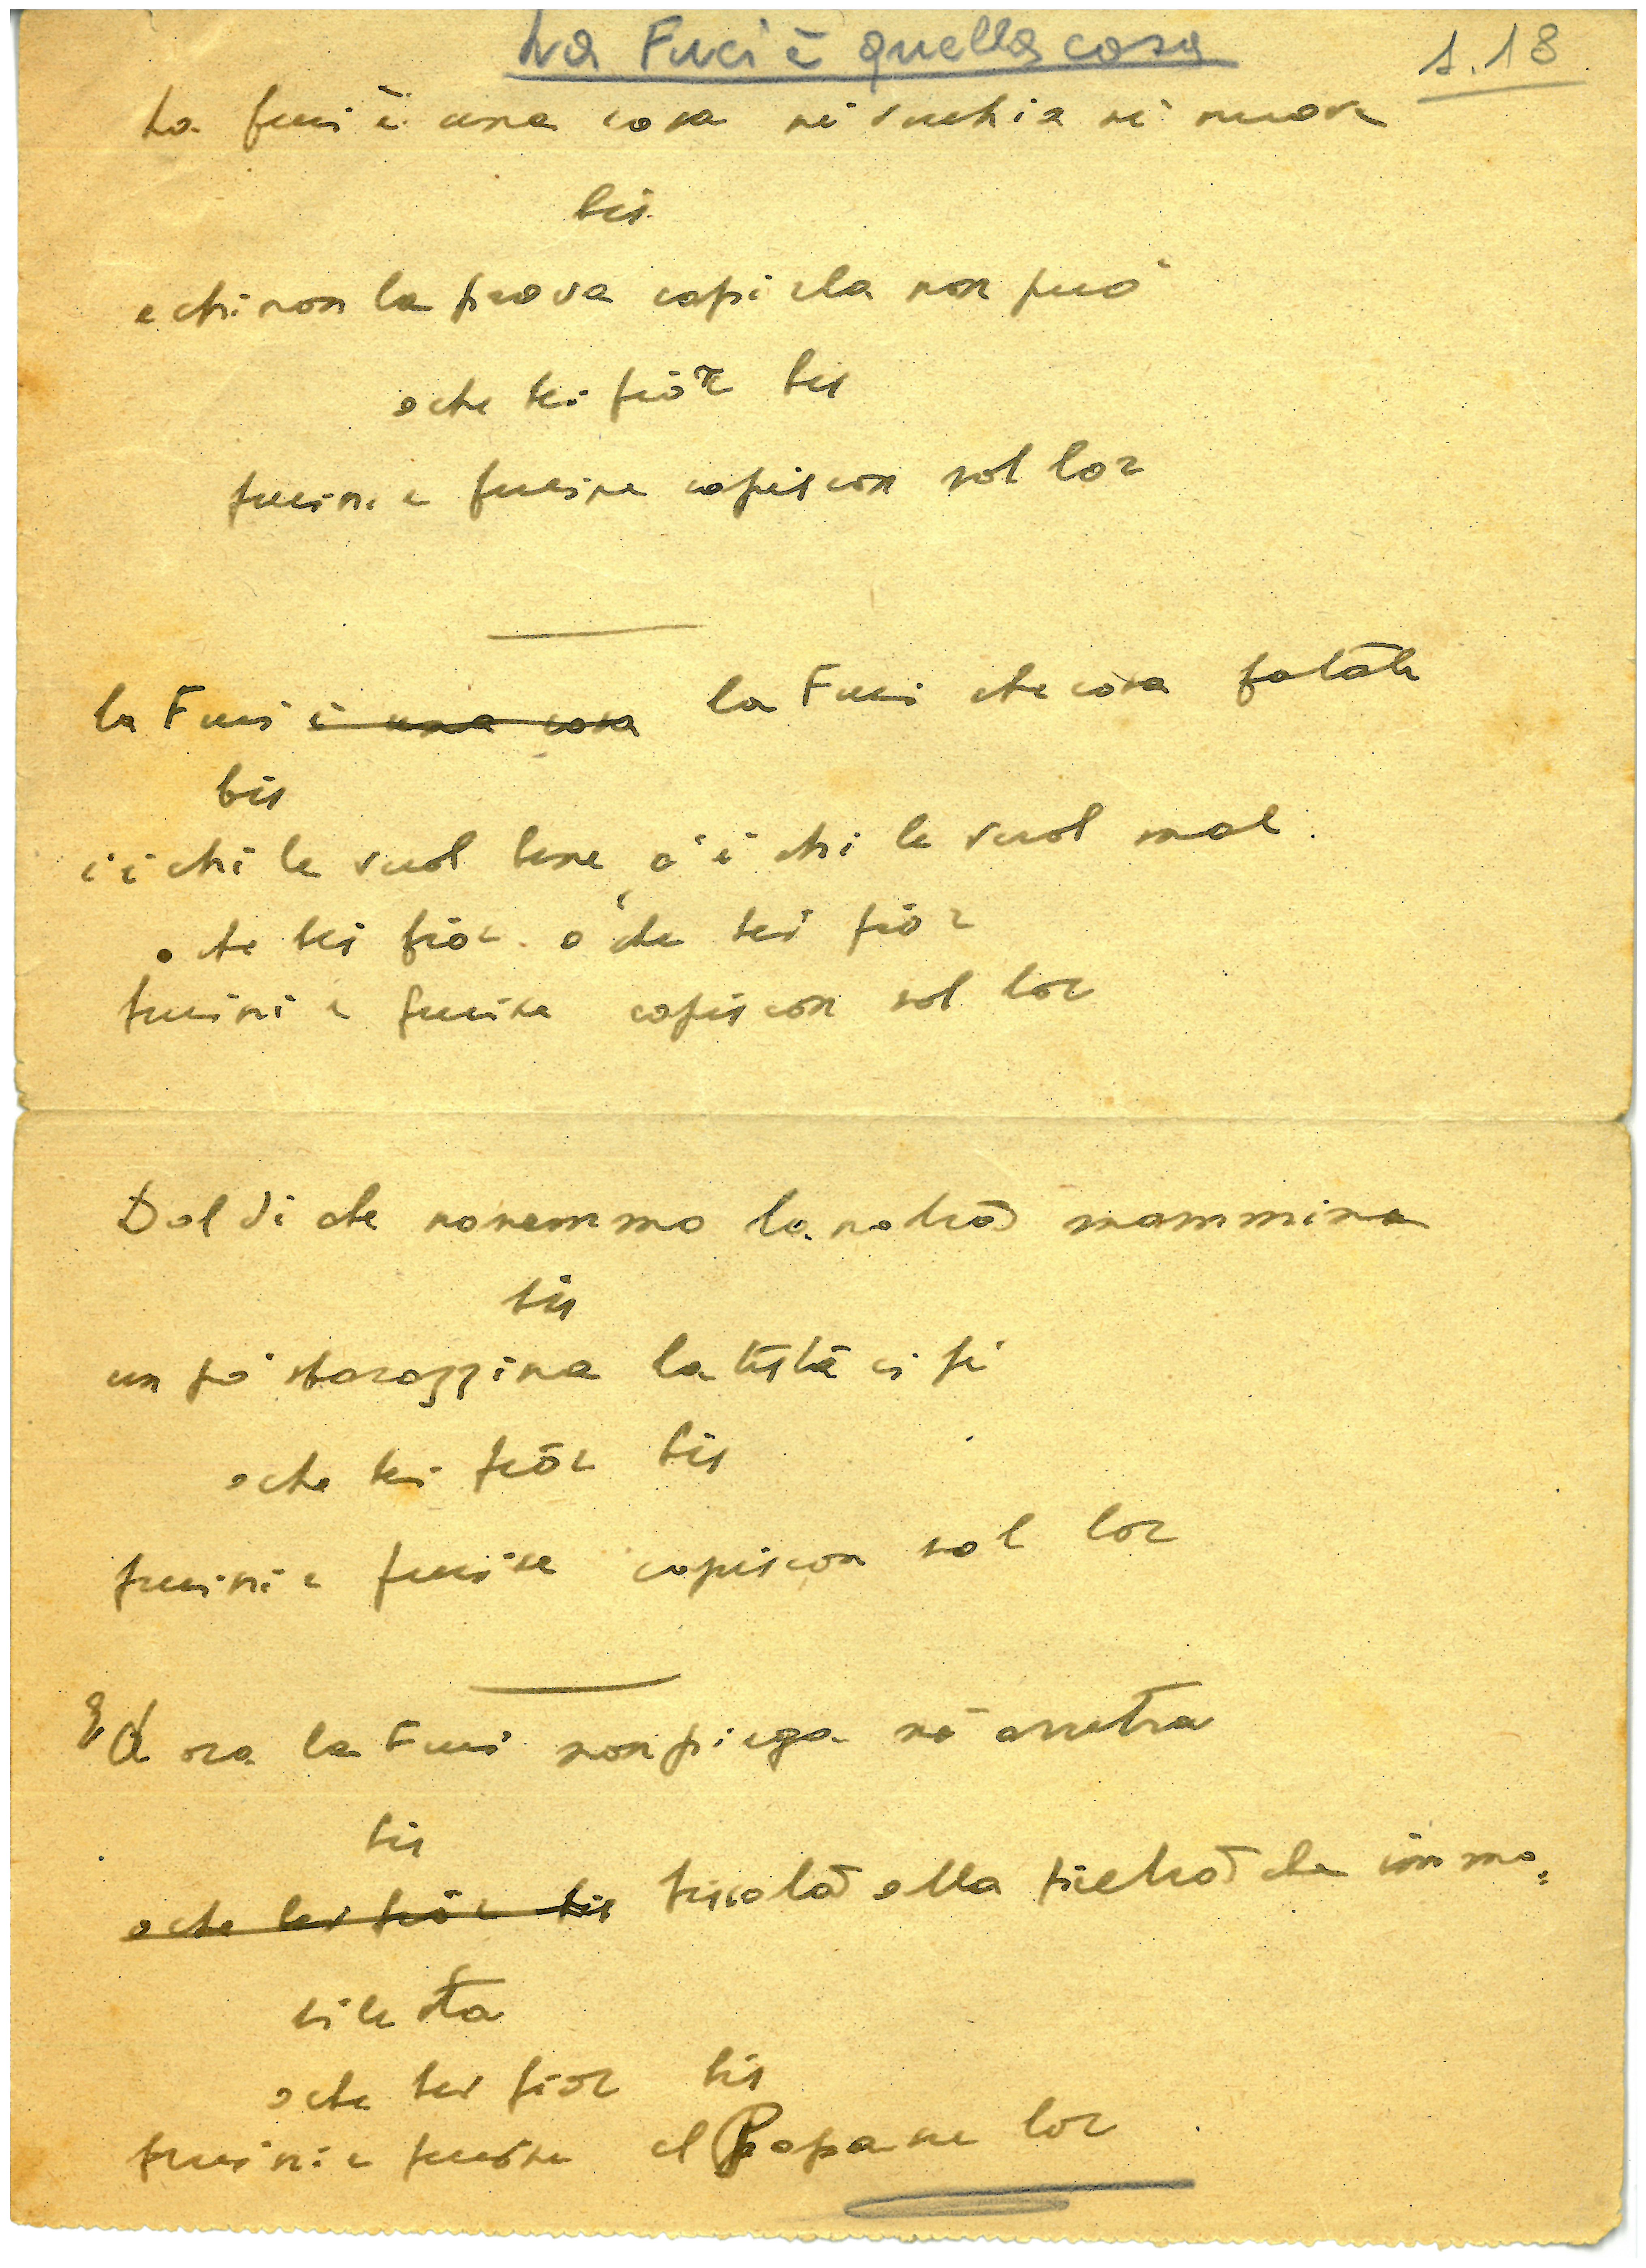 La Fuci è quella cosa
1.18
La fuci è una cosa nè vecchia nè nuova
bis
e chi non la prova capirla non può
o che bei fior bis
fucini e fucine capiscon sol lor
la Fuci è una cosa la Fuci che cosa fatale
bis
c'è chi le vuol bene c'è chi le vuol mal.
o che bei fior o che bei fior
fucini e fucine capiscon sol lor
Dal dì che nonemmo la mammina
bis
un pò la testa ci fè
o che bei fior bis
fucini e fucine capiscon sol lor
Ed ora la Fuci non piega nè arretra
bis
o che bei fior bis alla pietra che immo=
bile sta
o che bei fior bis
fucini e fucine el Papa ne lor